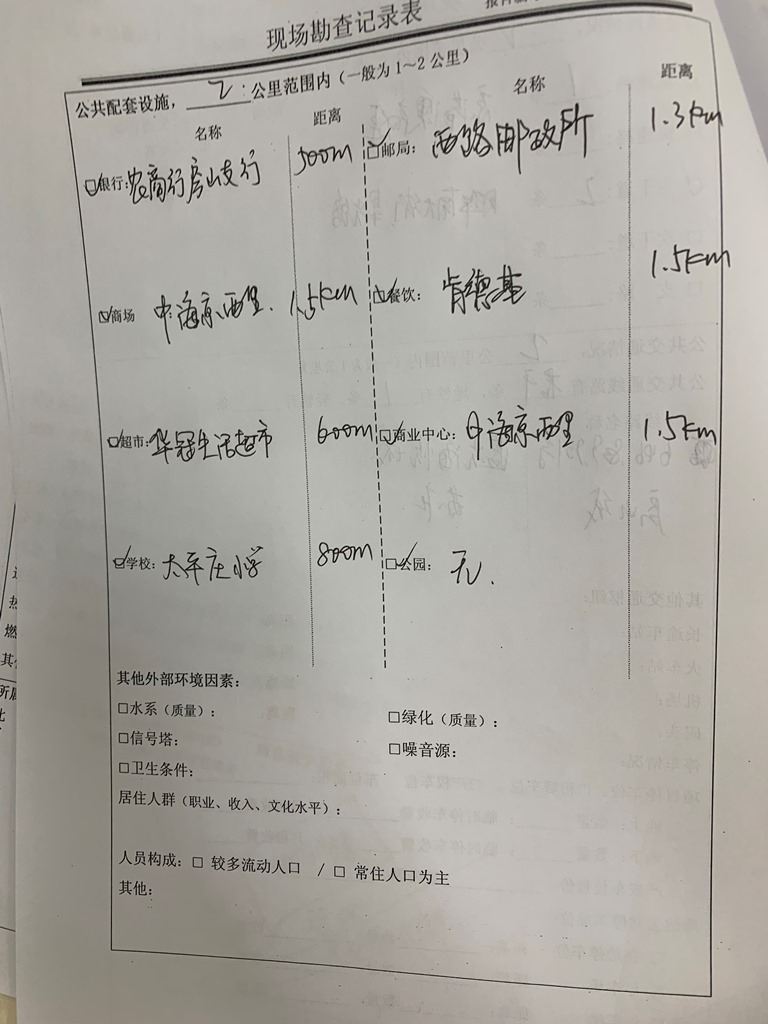 现场勘查记录表
公共配套设施，2公里范围内（一般为1～2公里）
名称 距离 名称 距离
☑银行：农商行房山支行 500m ☑邮局： 西路邮政所 1.3Km
☑商场 中海京西里. 1.5Km ☑餐饮： 肯德基 1.5Km
☑超市：华冠生活超市 600m ☑商业中心： 中海京西里 1.5Km
☑学校：太平庄小学 800m □公园： 无.
其他外部环境因素：
□水系（质量）： □绿化（质量）：
□信号塔： □噪音源：
□卫生条件：
居住人群（职业、收入、文化水平）：
人员构成：□ 较多流动人口 / □ 常住人口为主
其他：